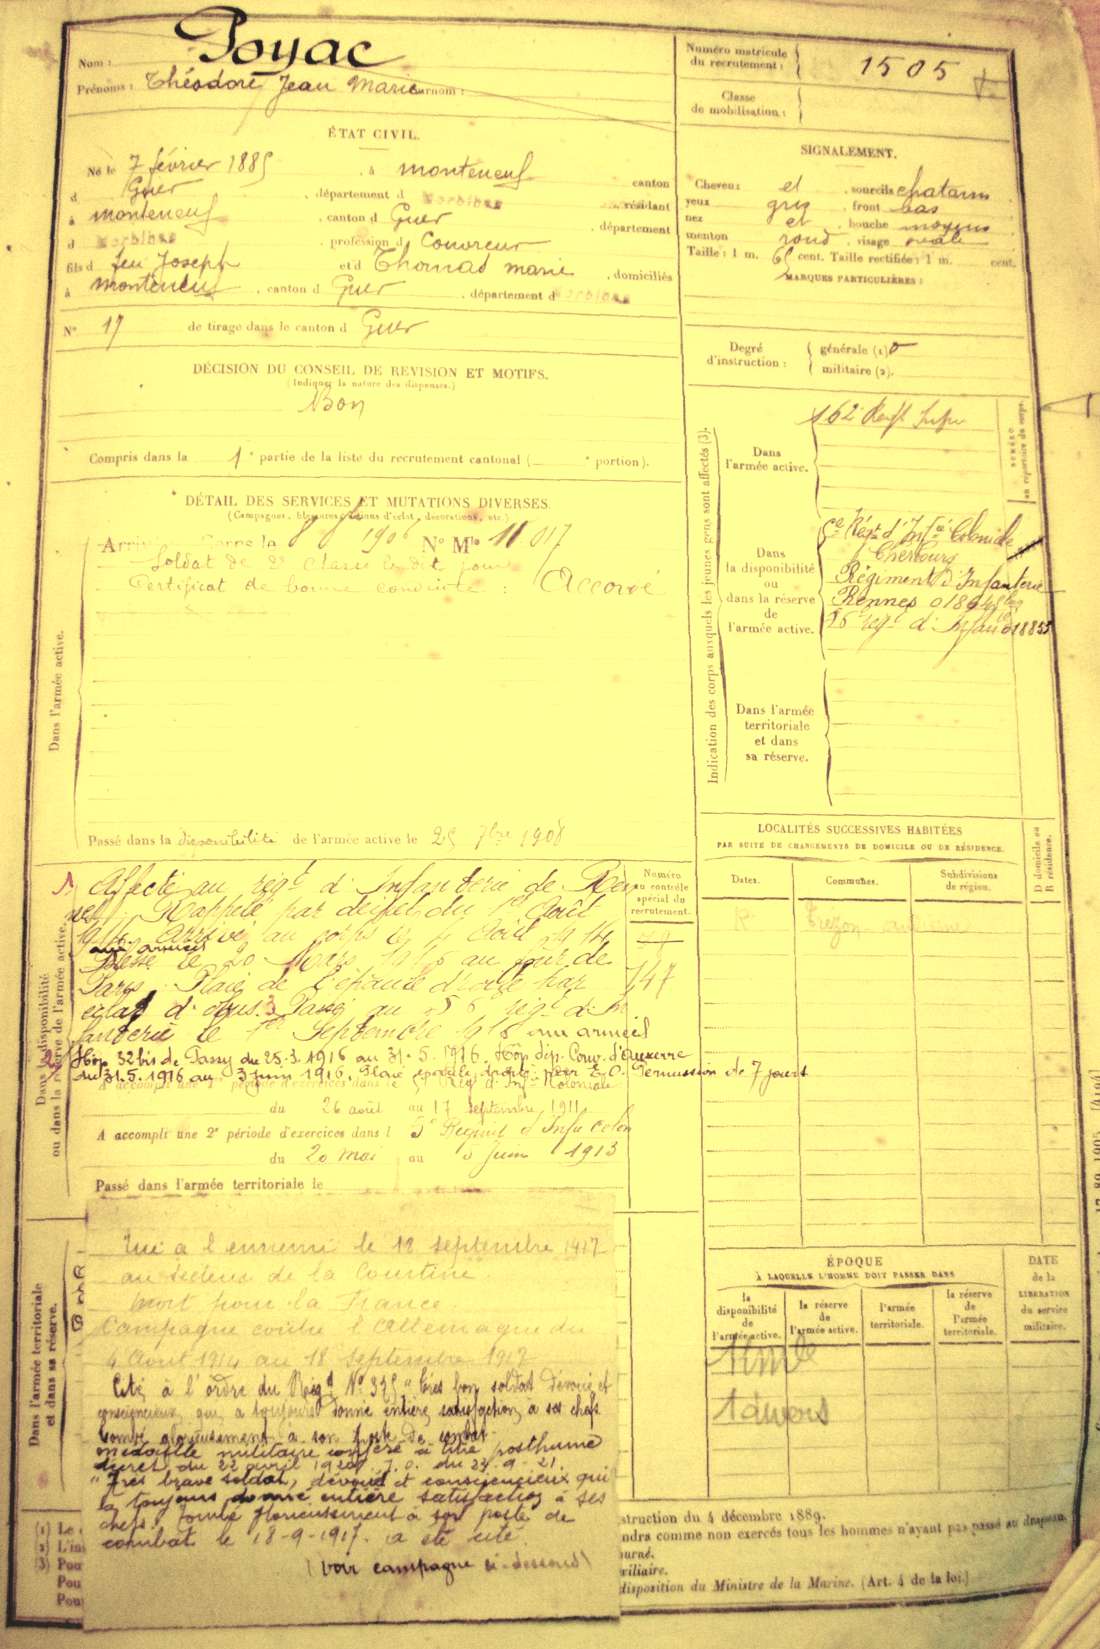 Nom : Poyac
Prénoms : Théodore Jean Marie Surnom :
Numéro matricule du recrutement : 1505
Classe de mobilisation :
ÉTAT CIVIL.
Né le 7 février 1885, à Monteneuf canton
d Guer, département d Morbihan résidant
à Monteneuf, canton d Guer, département
d Morbihan, profession d Couvreur
fils d feu Joseph et d Thomas Marie, domiciliés
à Monteneuf, canton d Guer, département d Morbihan
N° 17 de tirage dans le canton d Guer
SIGNALEMENT.
Cheveux et sourcils chatains
yeux gris, front bas
nez et bouche moyens
menton rond, visage ovale
Taille : 1 m. 65 cent. Taille rectifiée : 1 m. cent.
MARQUES PARTICULIÈRES :
Degré d'instruction : générale (1) 0
militaire (2).
DÉCISION DU CONSEIL DE REVISION ET MOTIFS.
(Indiquer la nature des dispenses.)
Bon
Compris dans la 1e partie de la liste du recrutement cantonal ( e portion).
DÉTAIL DES SERVICES ET MUTATIONS DIVERSES.
(Campagnes, blessures, actions d'éclat, décorations, etc.)
1906 N° Mle 11017
Soldat de 2e classe le dit jour
Certificat de bonne conduite : Accordé
Dans l'armée active.
Passé dans la disponibilité de l'armée active le 25 7bre 1908
Indication des corps auxquels les jeunes gens sont affectés (3).
NUMÉRO au répertoire du corps.
Dans l'armée active.
162 Regt Infie
Dans la disponibilité ou dans la réserve de l'armée active.
Régt d'Infie Coloniale
Cherbourg
Régiment d'Infanterie
Rennes
Dans l'armée territoriale et dans sa réserve.
Dans la disponibilité ou dans la réserve de l'armée active.
Numéro au contrôle spécial du recrutement.
747
Affecté au régt d'Infanterie de Ren
nes. Rappelé par décret du 1er Août
1914. Arrivé au corps le 4 Août 1914
aux armées
Blessé le 20 Mars 1916 au
Plaie de l'épaule droite par
éclat d'obus. Passé au régt d'In
fanterie le 1er Septembre 1916 aux armées
Hôp. 32 bis de Passy du 25.3.1916 au 31.5.1916. Hôp. dép. Conv. d'Auxerre
du 31.5.1916 au 3 juin 1916. Plaie épaule droite par E.O. Permission de 7 jours
A accompli une 1re période d'exercices dans le 5e Régt d'Infie Coloniale
du 26 août au 17 septembre 1911
A accompli une 2e période d'exercices dans l 5e Régiment d'Infie Colon
du 20 mai au 5 juin 1913
Passé dans l'armée territoriale le
Dans l'armée territoriale et dans sa réserve.
Tué à l'ennemi le 18 septembre 1917
au secteur de la Courtine.
Mort pour la France.
Campagne contre l'Allemagne du
4 Août 1914 au 18 septembre 1917
Cité à l'ordre du Régt N° 325 "Très bon soldat dévoué et
consciencieux qui a toujours donné entière satisfaction à ses chefs
Tombé glorieusement à son poste de combat.
Médaille militaire conféré à titre posthume
décret du 22 avril 1920. J.O. du 24-9-21.
"Très brave soldat, dévoué et consciencieux qui
a toujours donné entière satisfaction à ses
chefs. Tombé glorieusement à son poste de
combat le 18-9-1917. a été cité.
(voir campagne ci-dessous)
LOCALITÉS SUCCESSIVES HABITÉES
PAR SUITE DE CHANGEMENTS DE DOMICILE OU DE RÉSIDENCE.
Dates. Communes. Subdivisions de région. D domicile ou R résidence.
R
ÉPOQUE
À LAQUELLE L'HOMME DOIT PASSER DANS
la disponibilité de l'armée active.
la réserve de l'armée active.
l'armée territoriale.
la réserve de l'armée territoriale.
DATE de la LIBÉRATION du service militaire.
(1) Le
(2) L'in
(3) Pou
Pou
Pou
struction du 4 décembre 1889.
ndra comme non exercés tous les hommes n'ayant pas passé au drapeau
ourné.
xiliaire.
disposition du Ministre de la Marine. (Art. 4 de la loi.)